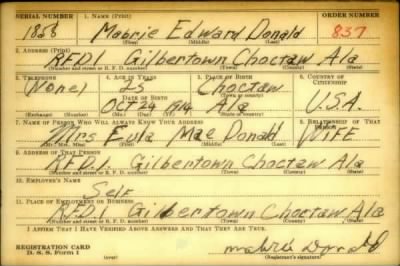 SERIAL NUMBER 1. NAME (Print) ORDER NUMBER
1828 Mabrie Edward Donald 837
(First) (Middle) (Last)
2. ADDRESS (Print)
RFD1 Gilbertown Choctaw Ala
(Number and street or R. F. D. number) (Town) (County) (State)
3. TELEPHONE 4. AGE IN YEARS 5. PLACE OF BIRTH 6. COUNTRY OF CITIZENSHIP
None 25 Choctaw
DATE OF BIRTH (Town or county)
OCT 24 1914 Ala U.S.A.
(Exchange) (Number) (Mo.) (Day) (Yr.) (State or country)
7. NAME OF PERSON WHO WILL ALWAYS KNOW YOUR ADDRESS 8. RELATIONSHIP OF THAT PERSON
Mrs Eula Mae Donald WIFE
(Mr., Mrs., Miss) (First) (Middle) (Last)
9. ADDRESS OF THAT PERSON
RFD1. Gilbertown Choctaw Ala
(Number and street or R. F. D. number) (Town) (County) (State)
10. EMPLOYER'S NAME
Self
11. PLACE OF EMPLOYMENT OR BUSINESS
RFD1 Gilbertown Choctaw Ala
(Number and street or R. F. D. number) (Town) (County) (State)
I AFFIRM THAT I HAVE VERIFIED ABOVE ANSWERS AND THAT THEY ARE TRUE.
REGISTRATION CARD
D. S. S. Form 1 Mabrie Donald
(Registrant's signature)